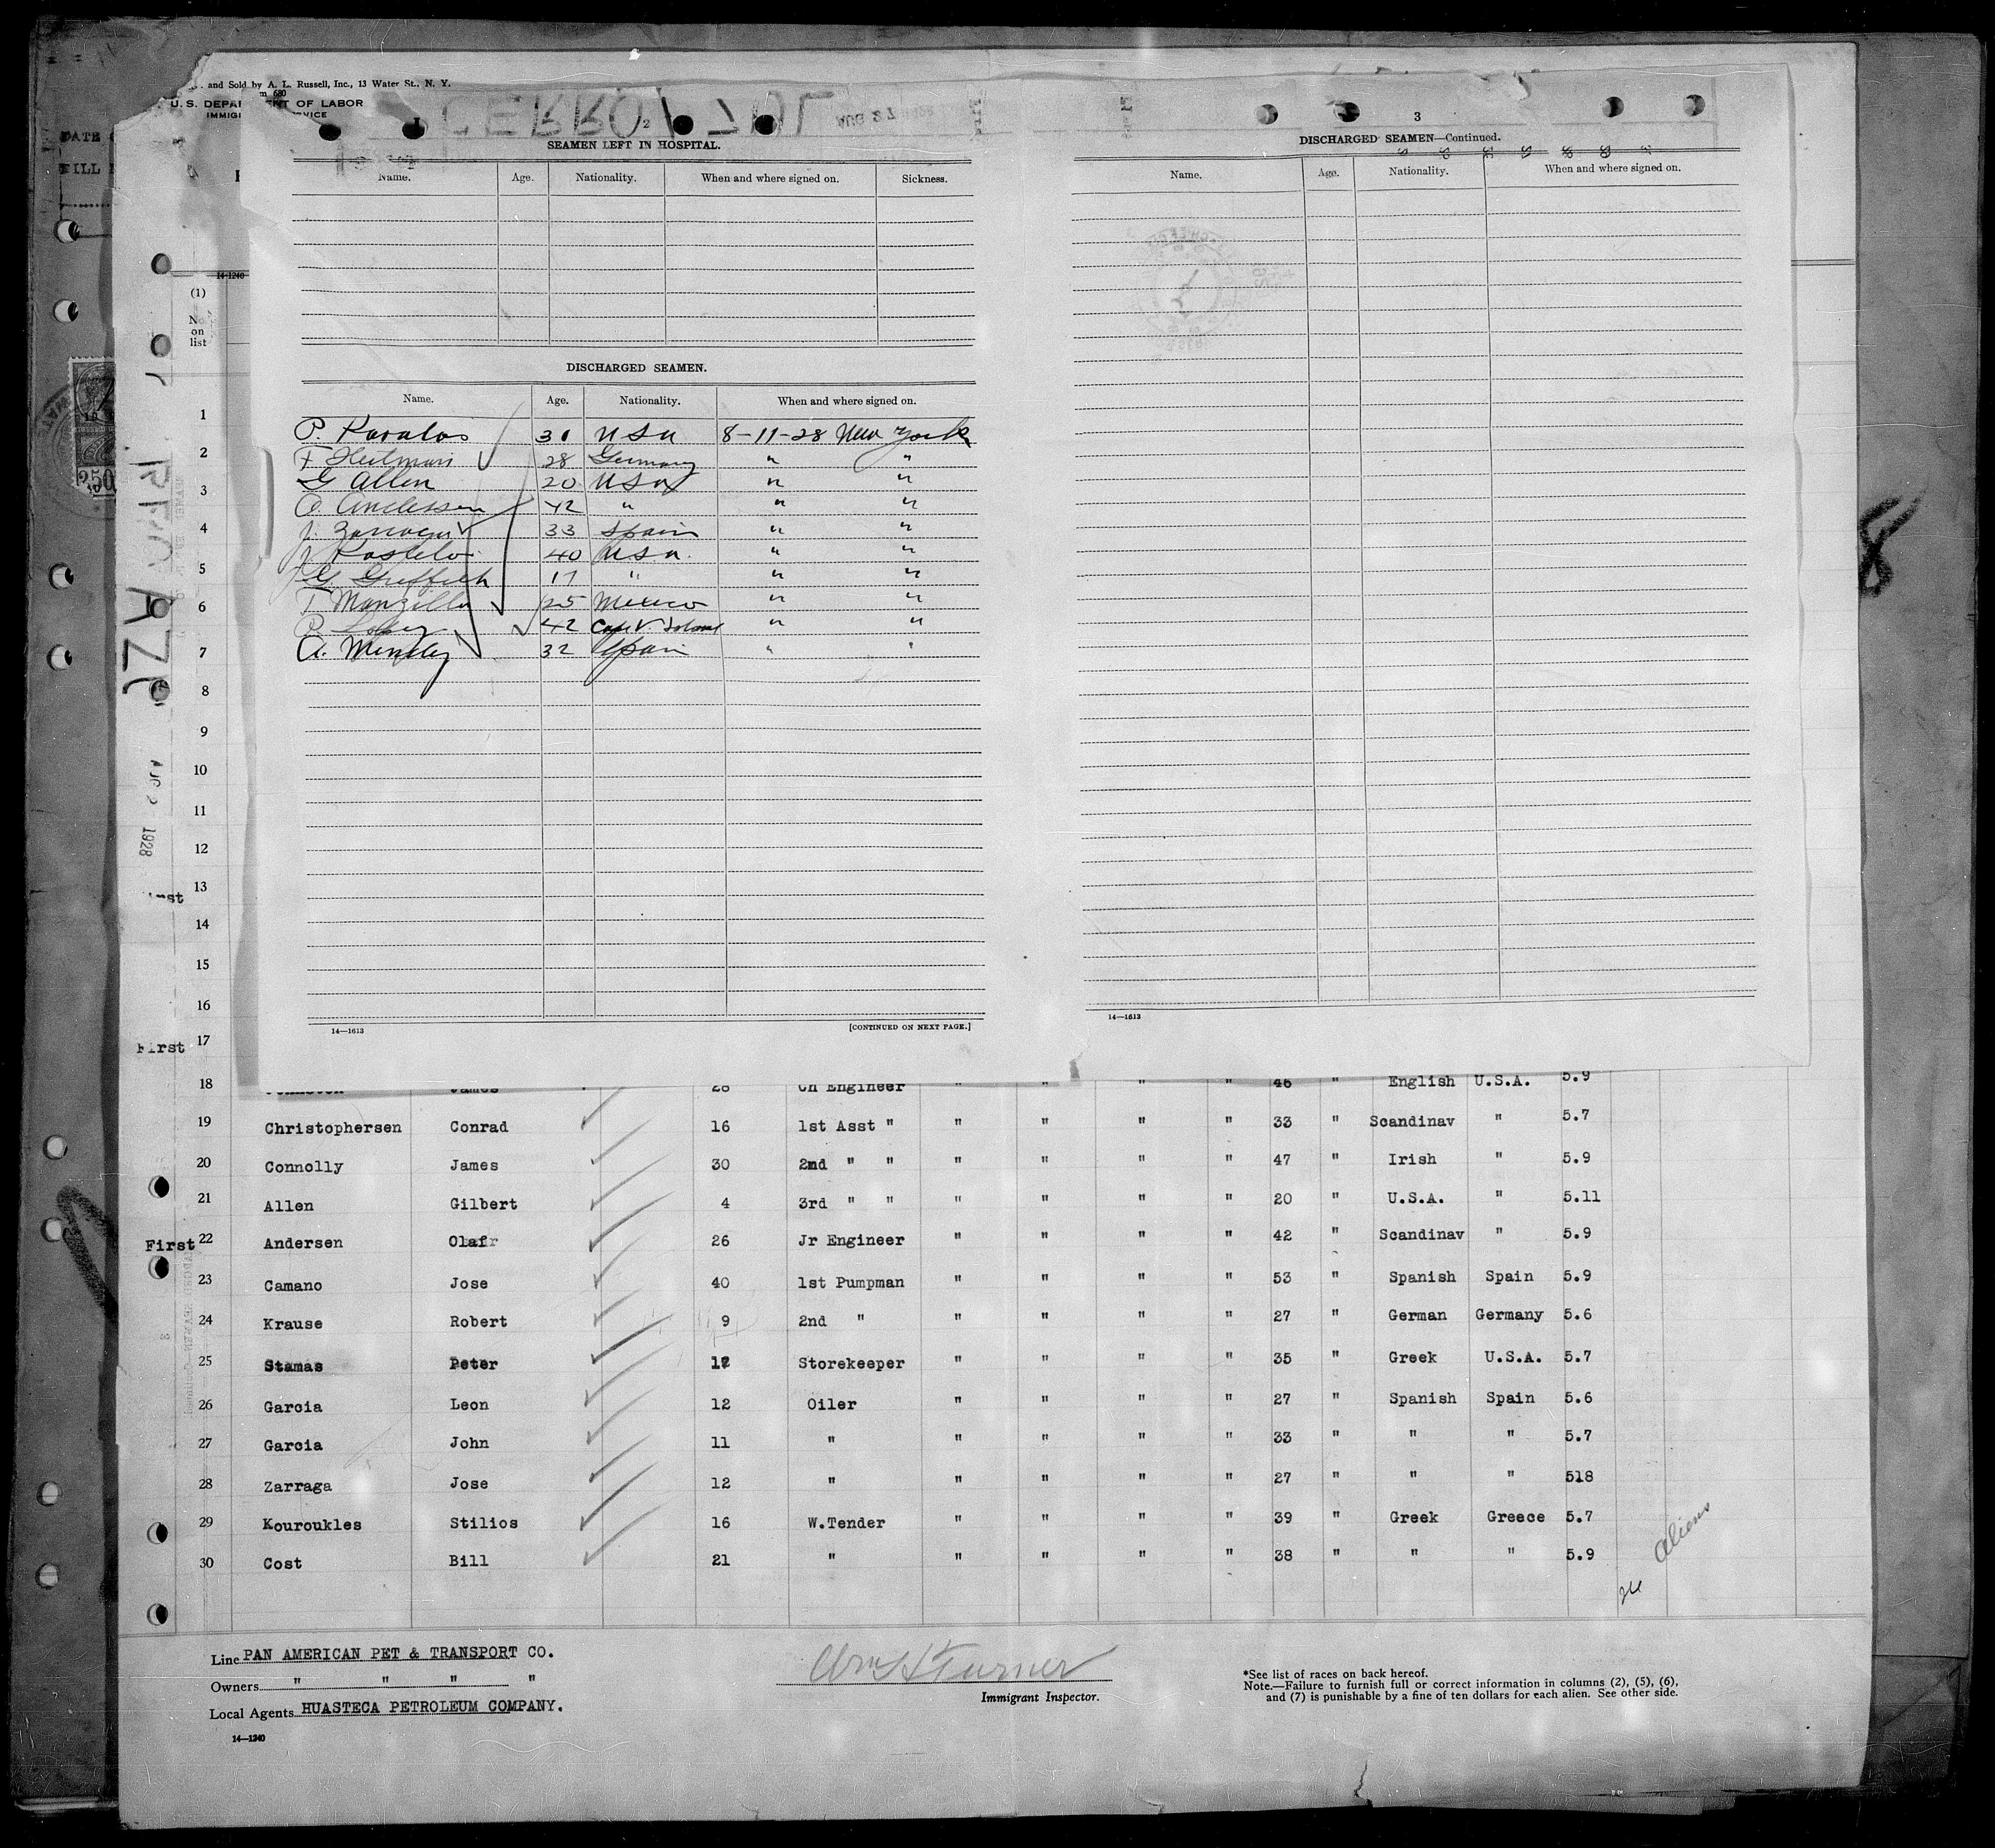 and Sold by A. L. Russell, Inc., 13 Water St., N. Y.
U.S. DEPA ENT OF LABOR
IMMIG VICE
14-1240
(1)
No.
on
list
2
SEAMEN LEFT IN HOSPITAL.
Name. Age. Nationality. When and where signed on. Sickness.
DISCHARGED SEAMEN.
Name. Age. Nationality. When and where signed on.
P. 31 USA 8-11-28 New York
F 28 Germany " "
G Allen 20 USA " "
O. Anderssen 42 " " "
J. 33 Spain " "
J. 40 U.S.A. " "
G. Griffith 17 " " "
T Manzilla 25 Mexico " "
P. Lopez 42 Cape V. Island " "
A. Mendez 32 Spain " "
14—1613 [CONTINUED ON NEXT PAGE.]
3
DISCHARGED SEAMEN—Continued.
Name. Age. Nationality. When and where signed on.
14—1613
1
2
3
4
5
6
7
8
9
10
11
12
13
14
15
16
First 17
18 James 28 Ch Engineer " " " " 46 " English U.S.A. 5.9
19 Christophersen Conrad 16 1st Asst " " " " " 33 " Scandinav " 5.7
20 Connolly James 30 2nd " " " " " " 47 " Irish " 5.9
21 Allen Gilbert 4 3rd " " " " " " 20 " U.S.A. " 5.11
First 22 Andersen Olaf 26 Jr Engineer " " " " 42 " Scandinav " 5.9
23 Camano Jose 40 1st Pumpman " " " " 53 " Spanish Spain 5.9
24 Krause Robert 9 2nd " " " " " 27 " German Germany 5.6
25 Stamas Peter 12 Storekeeper " " " " 35 " Greek U.S.A. 5.7
26 Garcia Leon 12 Oiler " " " " 27 " Spanish Spain 5.6
27 Garcia John 11 " " " " " 33 " " " 5.7
28 Zarraga Jose 12 " " " " " 27 " " " 518
29 Kouroukles Stilios 16 W.Tender " " " " 39 " Greek Greece 5.7
30 Cost Bill 21 " " " " " 38 " " " 5.9
Aliens
Line PAN AMERICAN PET & TRANSPORT CO.
Owners " " " "
Local Agents HUASTECA PETROLEUM COMPANY.
14—1240
Wm H Turner
Immigrant Inspector.
*See list of races on back hereof.
Note.—Failure to furnish full or correct information in columns (2), (5), (6),
and (7) is punishable by a fine of ten dollars for each alien. See other side.
1928
8